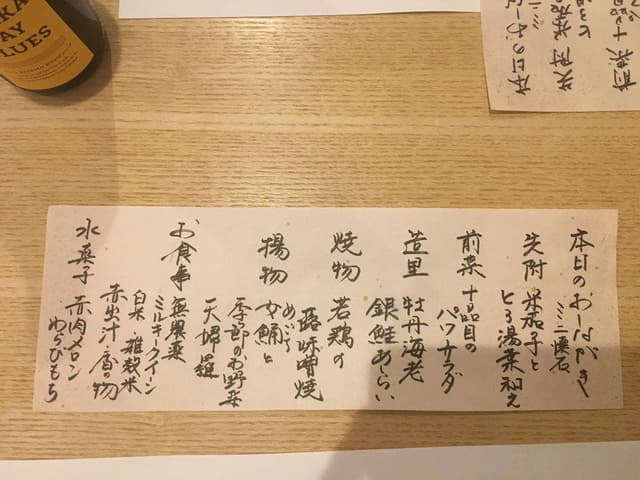 本日のおしながき
ミニ懐石
先附 米茄子と
とろ湯葉和え
前菜 十品目の
パワサラダ
造里 牡丹海老
銀鮭あしらい
焼物 若鶏の
蕗味噌焼
揚物 めごち
女鯒と
季節のお野菜
天婦羅
お食事 無農薬
ミルキークイーン
白米・雑穀米
赤出汁 香の物
水菓子 赤肉メロン
わらびもち
KA
AY
LUES